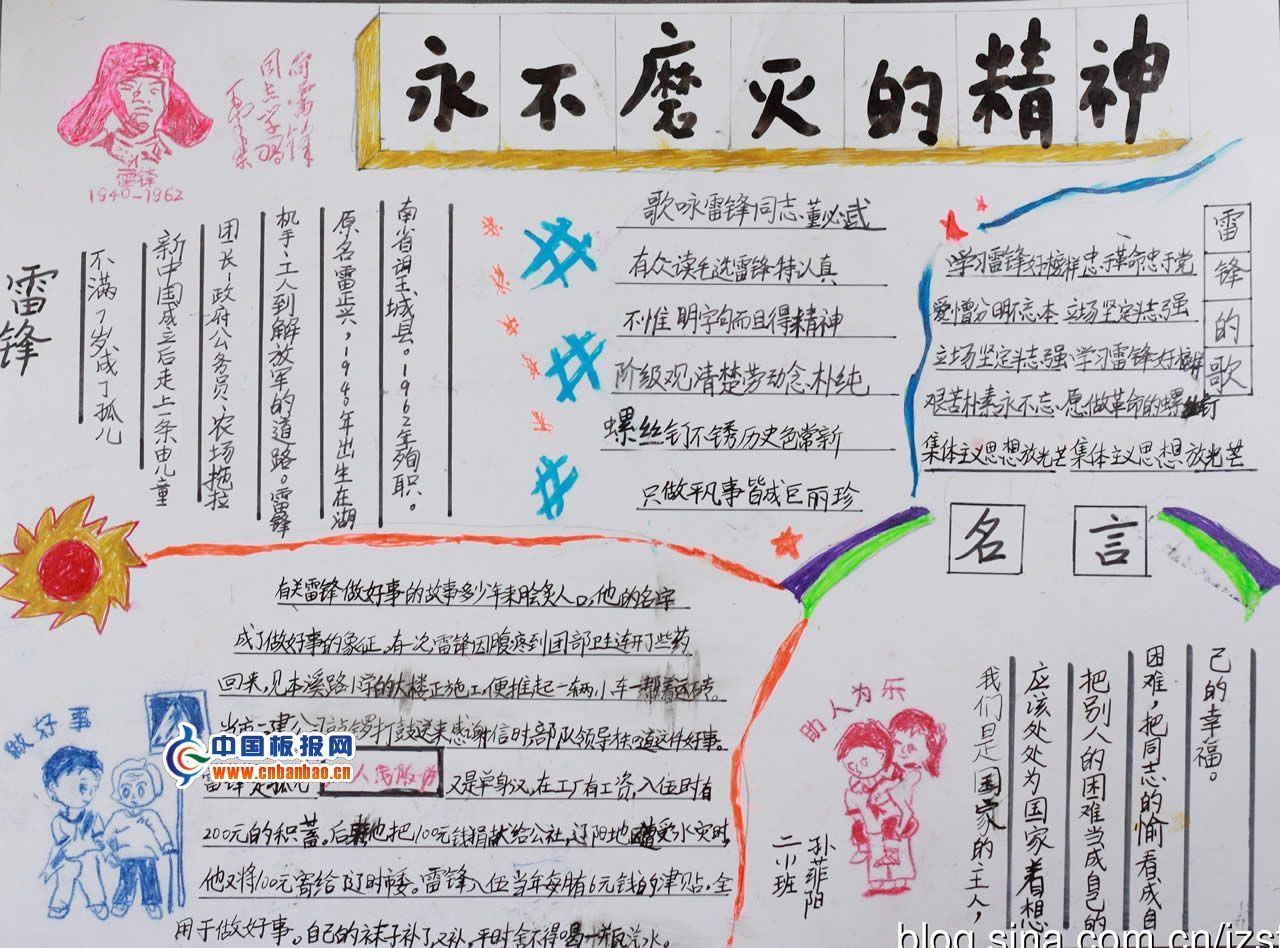 永不磨灭的精神
向雷锋
同志学习
毛泽东
雷锋
1940-1962
雷锋
不满7岁成了孤儿
新中国成立后走上一条由儿童
团长-政府公务员、农场拖拉
机手、工人到解放军的道路。雷锋
原名雷正兴,1940年出生在湖
南省望城县。1962年殉职。
歌咏雷锋同志董必武
有众读毛选雷锋特认真
不惟明字句而且得精神
阶级观清楚劳动念朴纯
螺丝钉不锈历史色常新
只做平凡事皆成巨丽珍
雷锋的歌
学习雷锋好榜样忠于革命忠于党
爱憎分明不忘本 立场坚定斗志强
立场坚定斗志强学习雷锋好榜样
艰苦朴素永不忘、愿做革命的螺丝钉
集体主义思想放光芒集体主义思想放光芒
有关雷锋做好事的故事多少年来脍炙人口,他的名字
成了做好事的象征。有一次雷锋因腹疼到团部卫生连开了些药
回来,见本溪路小学的大楼正施工,便推起一辆小车一帮着运砖。
当市二建公司敲锣打鼓送来感谢信时,部队领导
这件好事。
又是单身汉,在工厂有工资,入伍时有
200元的积蓄。后来他把100元钱捐献给公社,辽阳地遭受水灾时,
他又将100元寄给辽阳市委。雷锋入伍当年每月有6元钱的津贴。全
用于做好事。自己的袜子补了又补,平时舍不得喝一瓶汽水。
做好事
中国板报网
www.cnbanbao.cn
名言
我们是国家的主人,
应该处处为国家着想
把别人的困难当成自己的
困难,把同志的愉看成自
己的幸福。
助人为乐
二小班
孙菲阳
blog.sina.com.cn/jzs